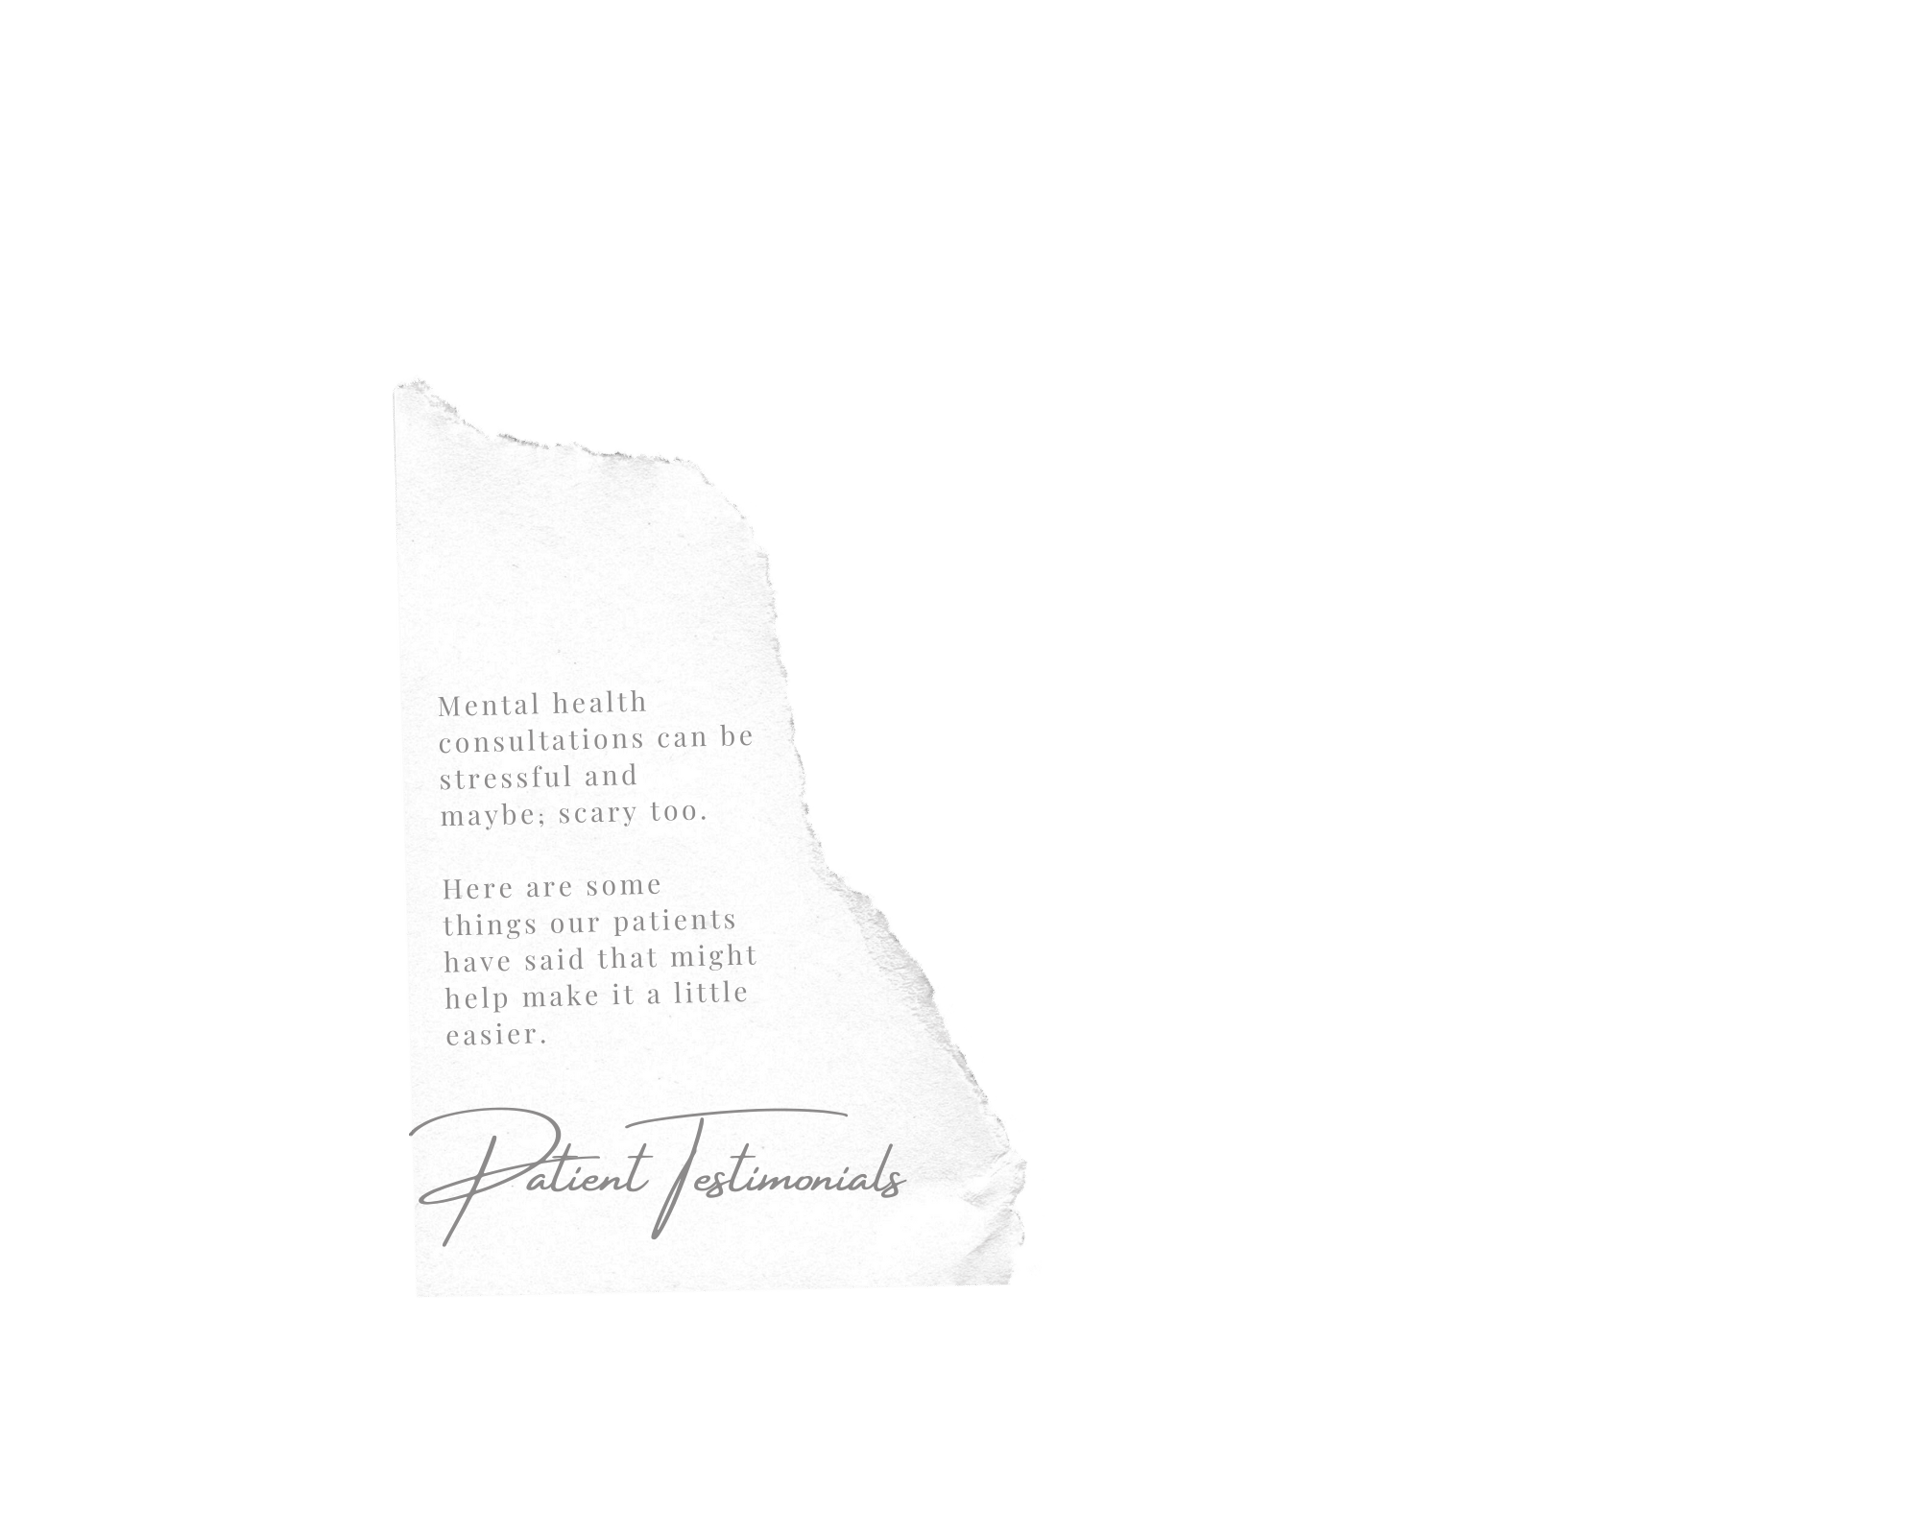 Mental health
consultations can be
stressful and
maybe; scary too.
Here are some
things our patients
have said that might
help make it a little
easier.
Patient Testimonials